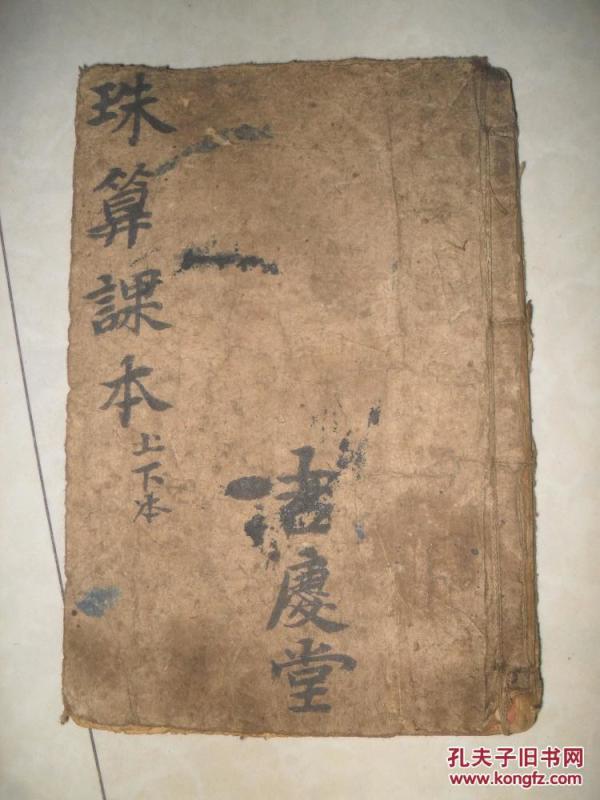 珠算課本
上下本
慶堂
孔夫子旧书网
www.kongfz.com